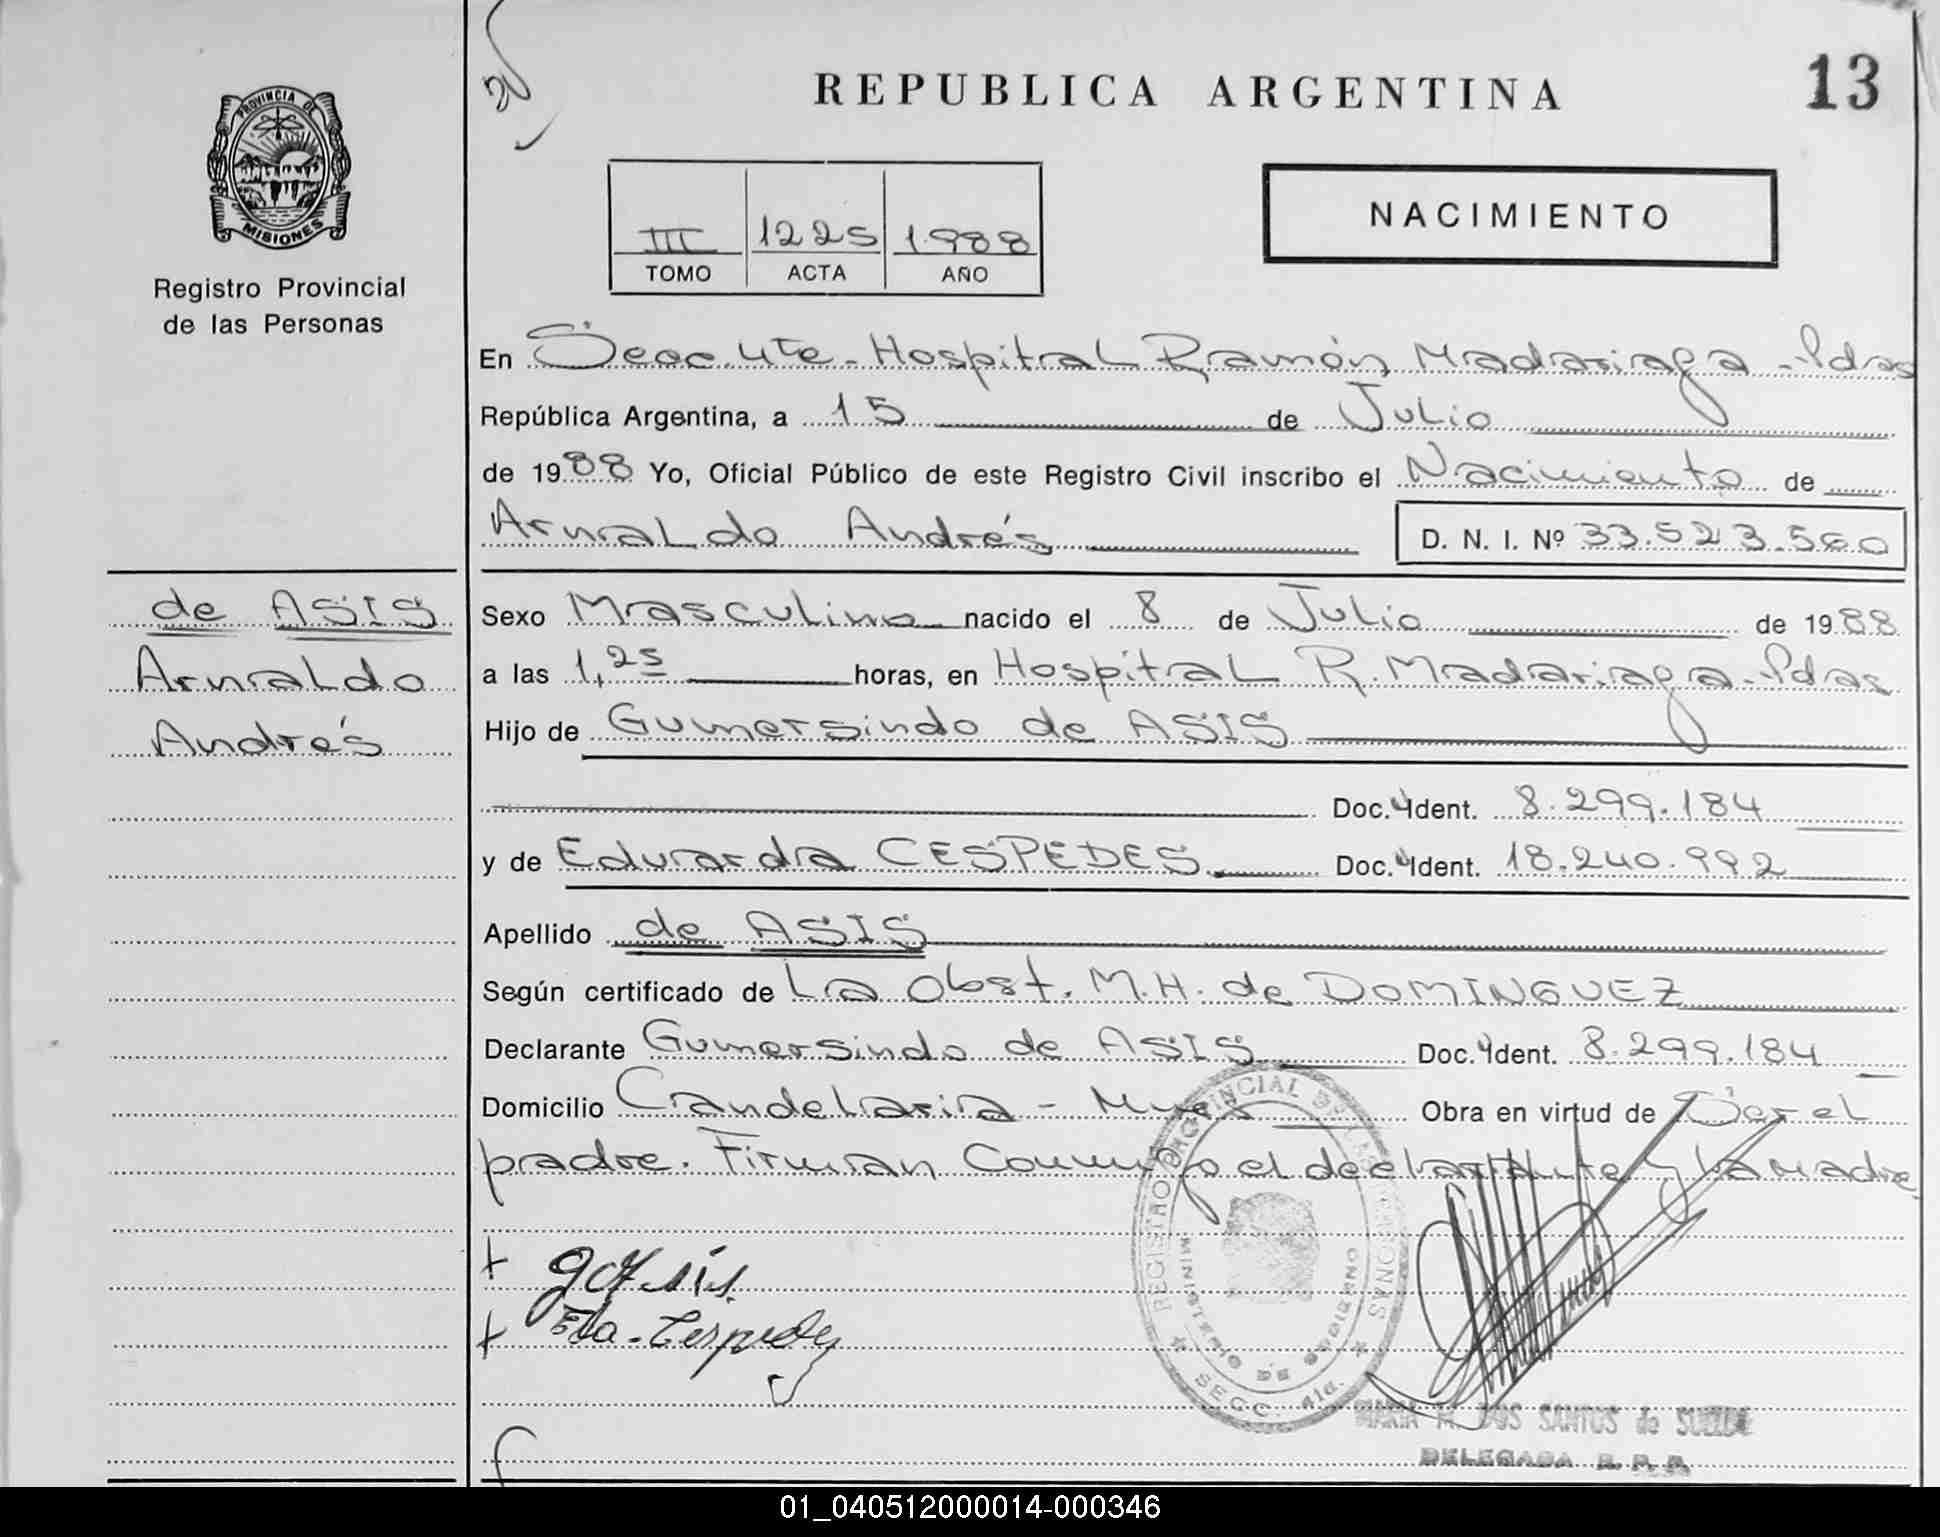 REPUBLICA ARGENTINA
13
PROVINCIA DE
MISIONES
Registro Provincial
de las Personas
III 1225 1.988
TOMO ACTA AÑO
NACIMIENTO
En Secc. 4ta - Hospital Ramón Madariaga - Pdas
República Argentina, a 15 de Julio
de 1988 Yo, Oficial Público de este Registro Civil inscribo el Nacimiento de
Arnaldo Andrés D. N. I. Nº 33.523.560
de ASIS
Arnaldo
Andrés
Sexo Masculino nacido el 8 de Julio de 1988
a las 1,25 horas, en Hospital R. Madariaga - Pdas
Hijo de Gumersindo de ASIS
Doc. Ident. 8.299.184
y de Eduarda CESPEDES Doc. Ident. 18.240.992
Apellido de ASIS
Según certificado de La Obst. M.H. de DOMINGUEZ
Declarante Gumersindo de ASIS Doc. Ident. 8.299.184
Domicilio Candelaria - Mnes Obra en virtud de Ser el
padre. Firman Conmigo el declarante y la madre
REGISTRO PROVINCIAL DE LAS PERSONAS
MINISTERIO DE GOBIERNO
SECC. 4ta.
Eda. Cespedes
MARIA M. DOS SANTOS de
DELEGADA R. P. P.
01_040512000014-000346